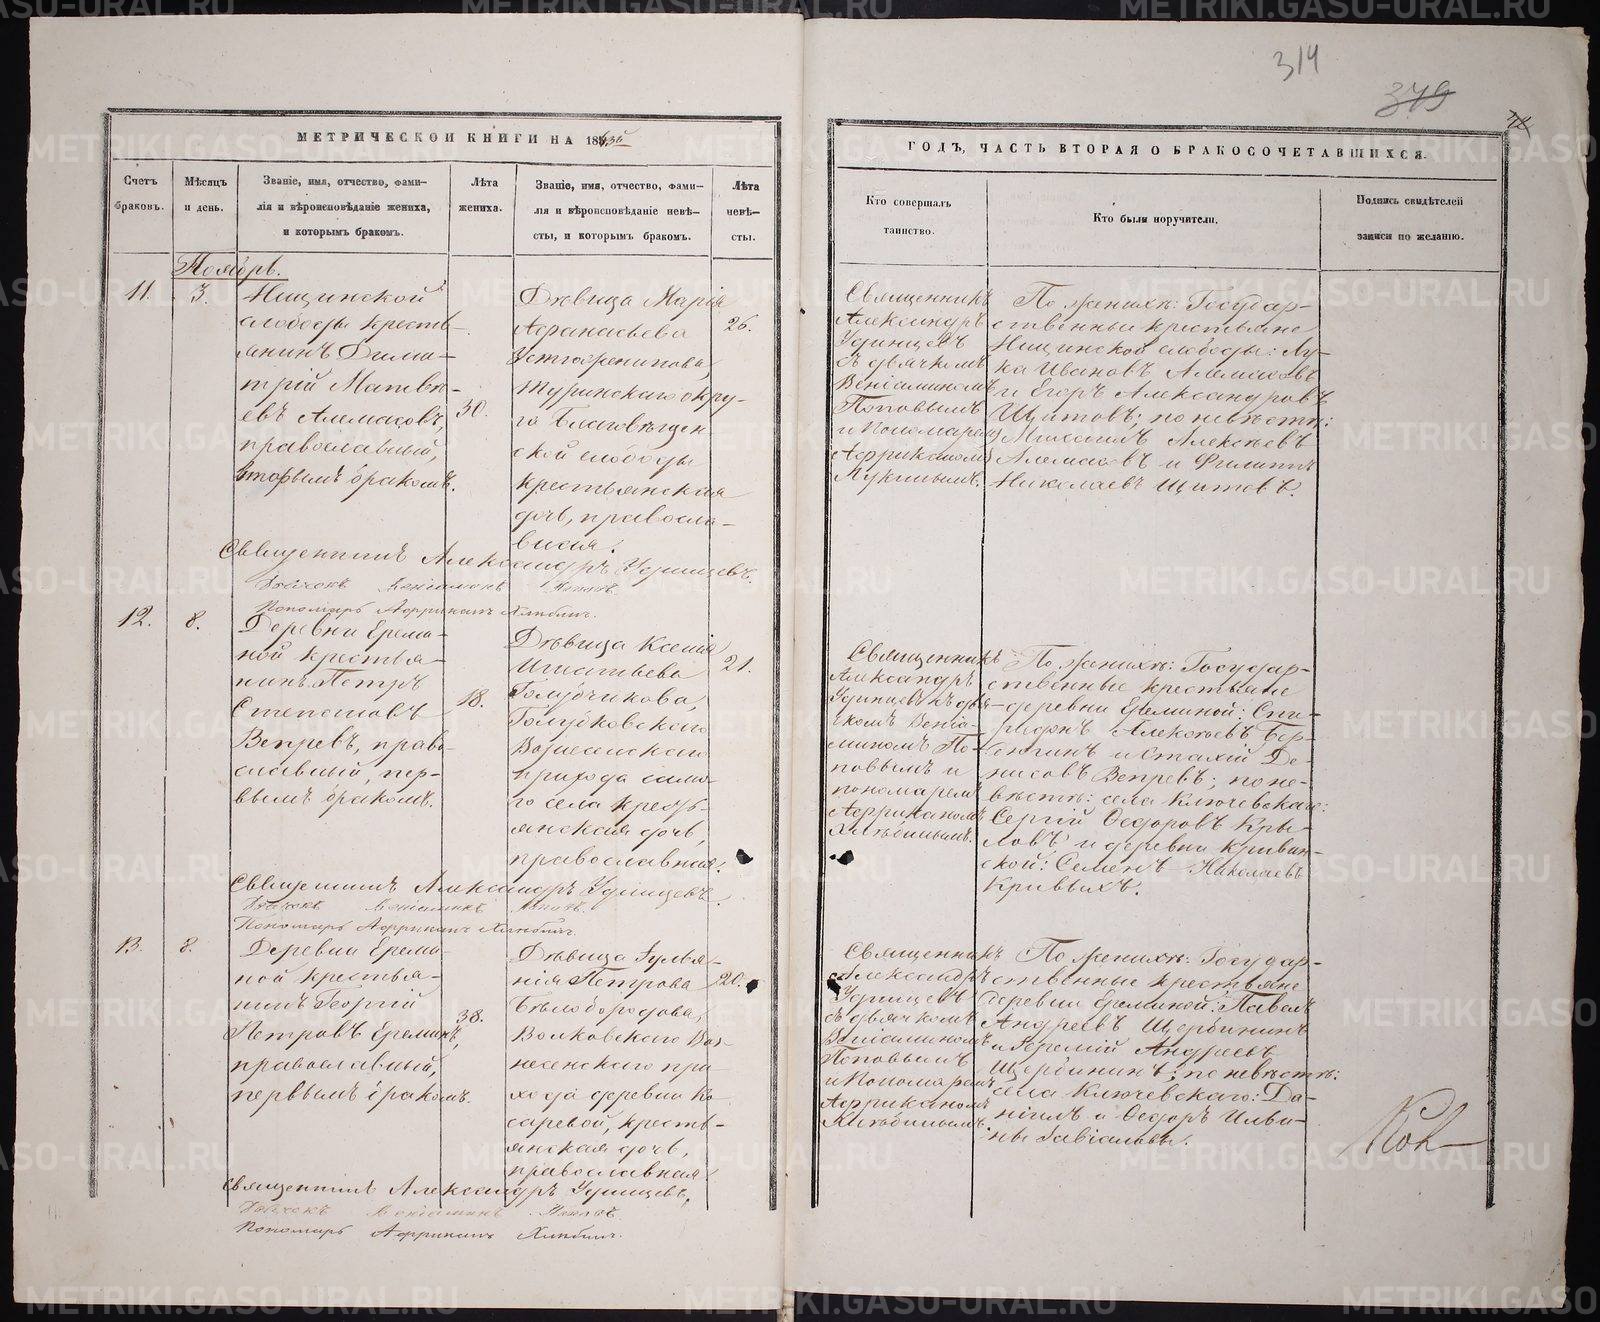 314
379
МЕТРИЧЕСКОЙ КНИГИ НА 18
ГОДЪ, ЧАСТЬ ВТОРАЯ О БРАКОСОЧЕТАВШИХСЯ.
Счетъ браковъ.
Мѣсяцъ и день.
Званіе, имя, отчество, фами-
лія и вѣроисповѣданіе жениха,
и которымъ бракомъ.
Лѣта жениха.
Званіе, имя, отчество, фами-
лія и вѣроисповѣданіе невѣ-
сты, и которымъ бракомъ.
Лѣта невѣ-
сты.
Кто совершалъ
таинство.
Кто были поручители.
Подпись свидѣтелей
записи по желанію.
Ноябрь.
11.
3.
слободы кресть-
янинъ Дими-
трій Матвѣ-
евъ Алемасовъ,
православный,
вторымъ бракомъ.
30.
Дѣвица Марія
Аѳанасьева
Туринскаго окру-
га Благовѣщен
ской слободы
крестьянская
дочь, правосла-
вная.
26.
Священникъ
Александръ
Удинцевъ
съ дьячкомъ
Веніаминомъ
Поповымъ
и Пономаремъ
Африканомъ
По женихѣ: Государ-
ственные крестьяне
слободы: Лу-
ка Ивановъ Алемасовъ
и Егоръ Александровъ
Щитовъ; по невѣстѣ:
Михаилъ Алексѣевъ
Алемасовъ и Филиппъ
Николаевъ Щитовъ.
Священникъ Александръ Удинцевъ.
Дьячекъ Веніаминъ Поповъ.
Пономарь Африканъ Хлѣбинъ.
12.
8.
Деревни Ереми-
ной крестья-
нинъ Петръ
Степановъ
Вепревъ, право-
славный, пер-
вымъ бракомъ.
18.
Дѣвица Ксенія
Игнатьева
Вознесенскаго
прихода само-
го села кресть-
янская дочь,
православная.
21.
Священникъ
Александръ
Удинцевъ съ дья-
чкомъ Веніа-
миномъ По-
повымъ и
пономаремъ
Африканомъ
Хлѣбинымъ.
По женихѣ: Государ-
ственные крестьяне
деревни Ереминой: Спи-
ридонъ Алексѣевъ
и Де-
нисовъ Вепревъ; по не-
вѣстѣ: села Ключевскаго:
Сергій Ѳедоровъ Кры-
ловъ и деревни Кривин-
ской: Семенъ Николаевъ
Кривыхъ.
Священникъ Александръ Удинцевъ.
Дьячекъ Веніаминъ Поповъ.
Пономарь Африканъ Хлѣбинъ.
13.
8.
Деревни Ереми-
ной крестья-
нинъ Георгій
Петровъ Ереминъ,
православный,
первымъ бракомъ.
38.
Дѣвица Іулья-
нія Петрова
Бѣлобородова,
Волковскаго Воз-
несенскаго при-
хода деревни Ко
саревой, кресть-
янская дочь,
православная.
20.
Священникъ
Александръ
Удинцевъ
съ дьячкомъ
Веніаминомъ
Поповымъ
и Пономаремъ
Африканомъ
Хлѣбинымъ.
По женихѣ: Государ-
ственные крестьяне
деревни Ереминой: Павелъ
Андреевъ Щербининъ
и Іеремій Андреевъ
Щербининъ; по невѣстѣ:
села Ключевскаго: Да-
ніилъ и Ѳедоръ Ильи-
ны Завіаловы.
Священникъ Александръ Удинцевъ.
Дьячекъ Веніаминъ Поповъ.
Пономарь Африканъ Хлѣбинъ.
METRIKI.GASO-URAL.RU